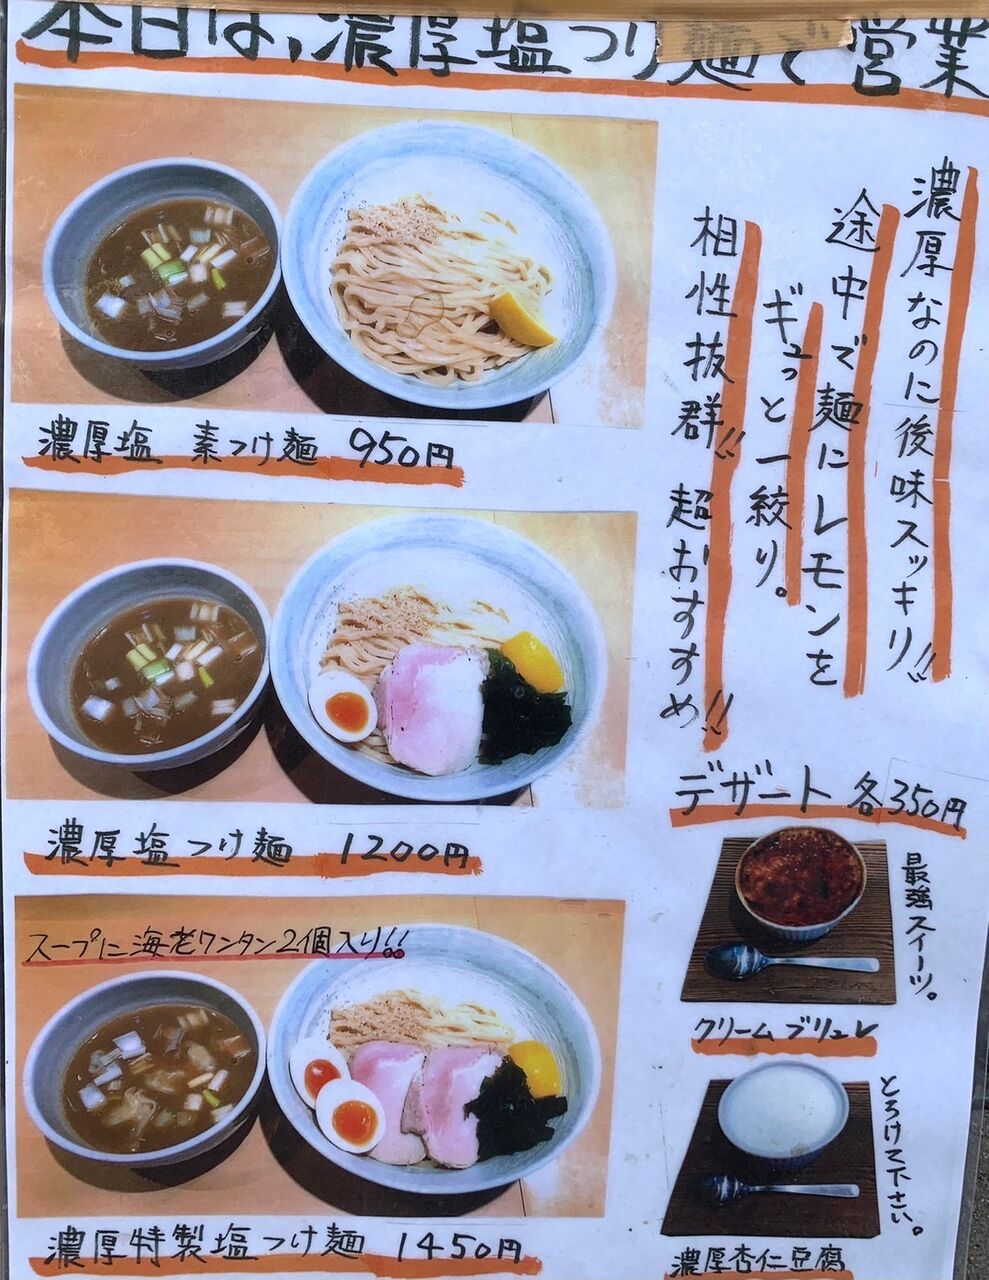 本日は、濃厚塩つけ麺で営業
濃厚なのに後味スッキリ!!
途中で麺にレモンを
ギュっと一絞り。
相性抜群!! 超おすすめ!!
濃厚塩 素つけ麺 950円
濃厚塩つけ麺 1200円
スープに海老ワンタン2個入り!!
濃厚特製塩つけ麺 1450円
デザート 各350円
最強スイーツ。
クリームブリュレ
とろけて下さい。
濃厚杏仁豆腐